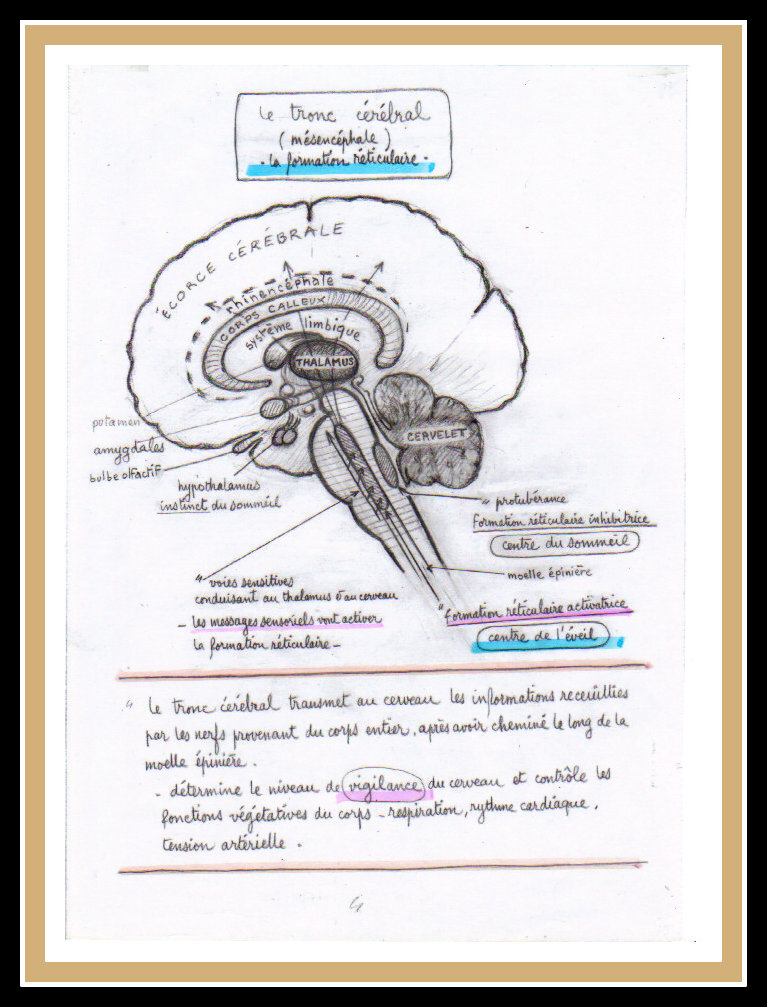 Le tronc cérébral
(mésencéphale)
- la formation réticulaire -
ÉCORCE CÉRÉBRALE
rhinencéphale
CORPS CALLEUX
système limbique
THALAMUS
putamen
amygdales
bulbe olfactif
CERVELET
hypothalamus
instinct du sommeil
" protubérance
Formation réticulaire inhibitrice
centre du sommeil
moelle épinière
" voies sensitives
conduisant au thalamus et au cerveau
- les messages sensoriels vont activer
la formation réticulaire -
" formation réticulaire activatrice
centre de l'éveil
" le tronc cérébral transmet au cerveau les informations receuillies
par les nerfs provenant du corps entier, après avoir cheminé le long de la
moelle épinière.
- détermine le niveau de vigilance du cerveau et contrôle les
fonctions végétatives du corps - respiration, rythme cardiaque,
tension artérielle.